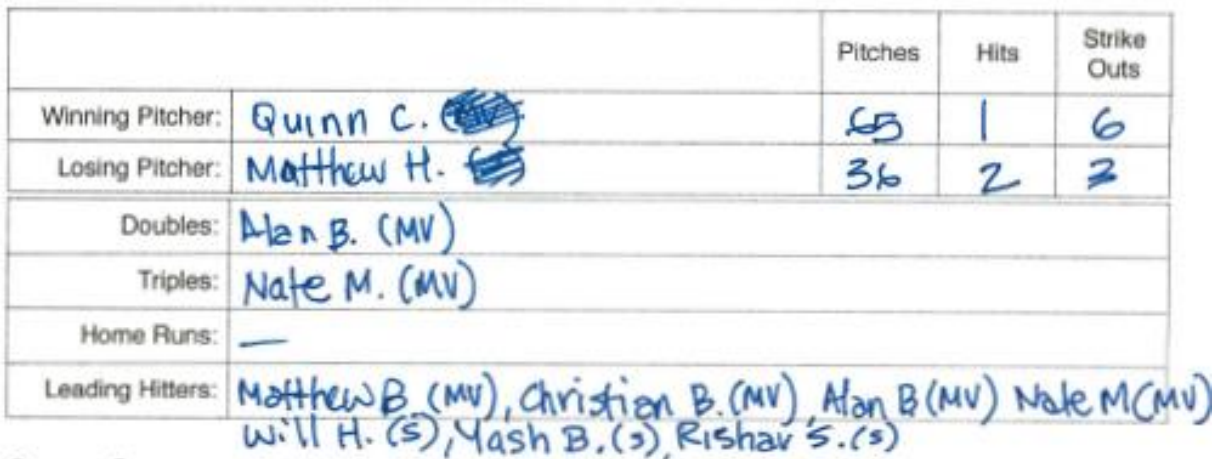 Pitches Hits Strike Outs
Winning Pitcher: Quinn C. 65 1 6
Losing Pitcher: Matthew H. 36 2
Doubles: Alan B. (MV)
Triples: Nate M. (MV)
Home Runs: —
Leading Hitters: Matthew B. (MV), Christian B. (MV), Alan B (MV) Nate M (MV)
Will H. (S), Yash B. (S), Rishav S. (S)